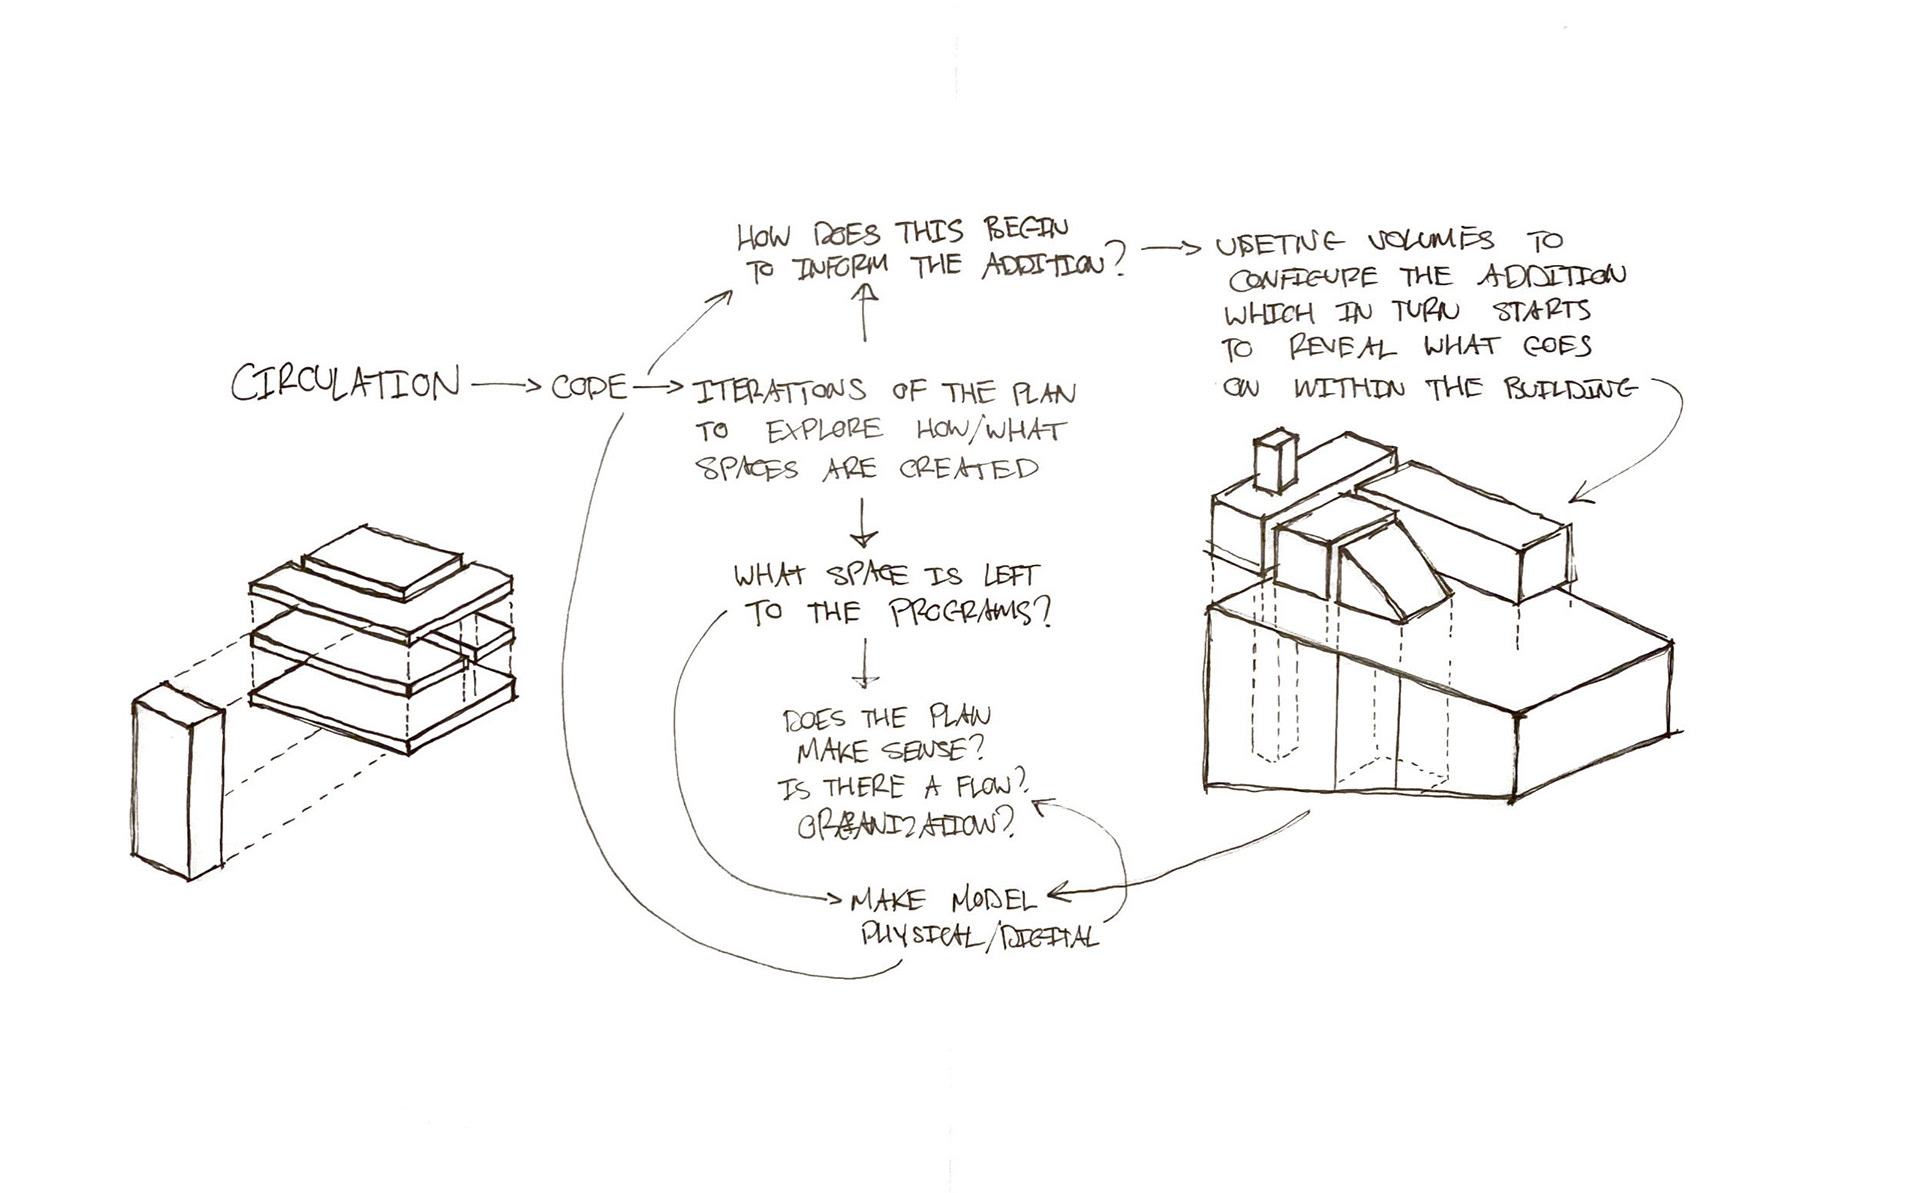 HOW DOES THIS BEGIN
TO INFORM THE ADDITION?
VOLUMES TO
CONFIGURE THE ADDITION
WHICH IN TURN STARTS
TO REVEAL WHAT GOES
ON WITHIN THE BUILDING
CIRCULATION
CODE
ITERATIONS OF THE PLAN
TO EXPLORE HOW/WHAT
SPACES ARE CREATED
WHAT SPACE IS LEFT
TO THE PROGRAMS?
DOES THE PLAN
MAKE SENSE?
IS THERE A FLOW?
ORGANIZATION?
MAKE MODEL
PHYSICAL/DIGITAL